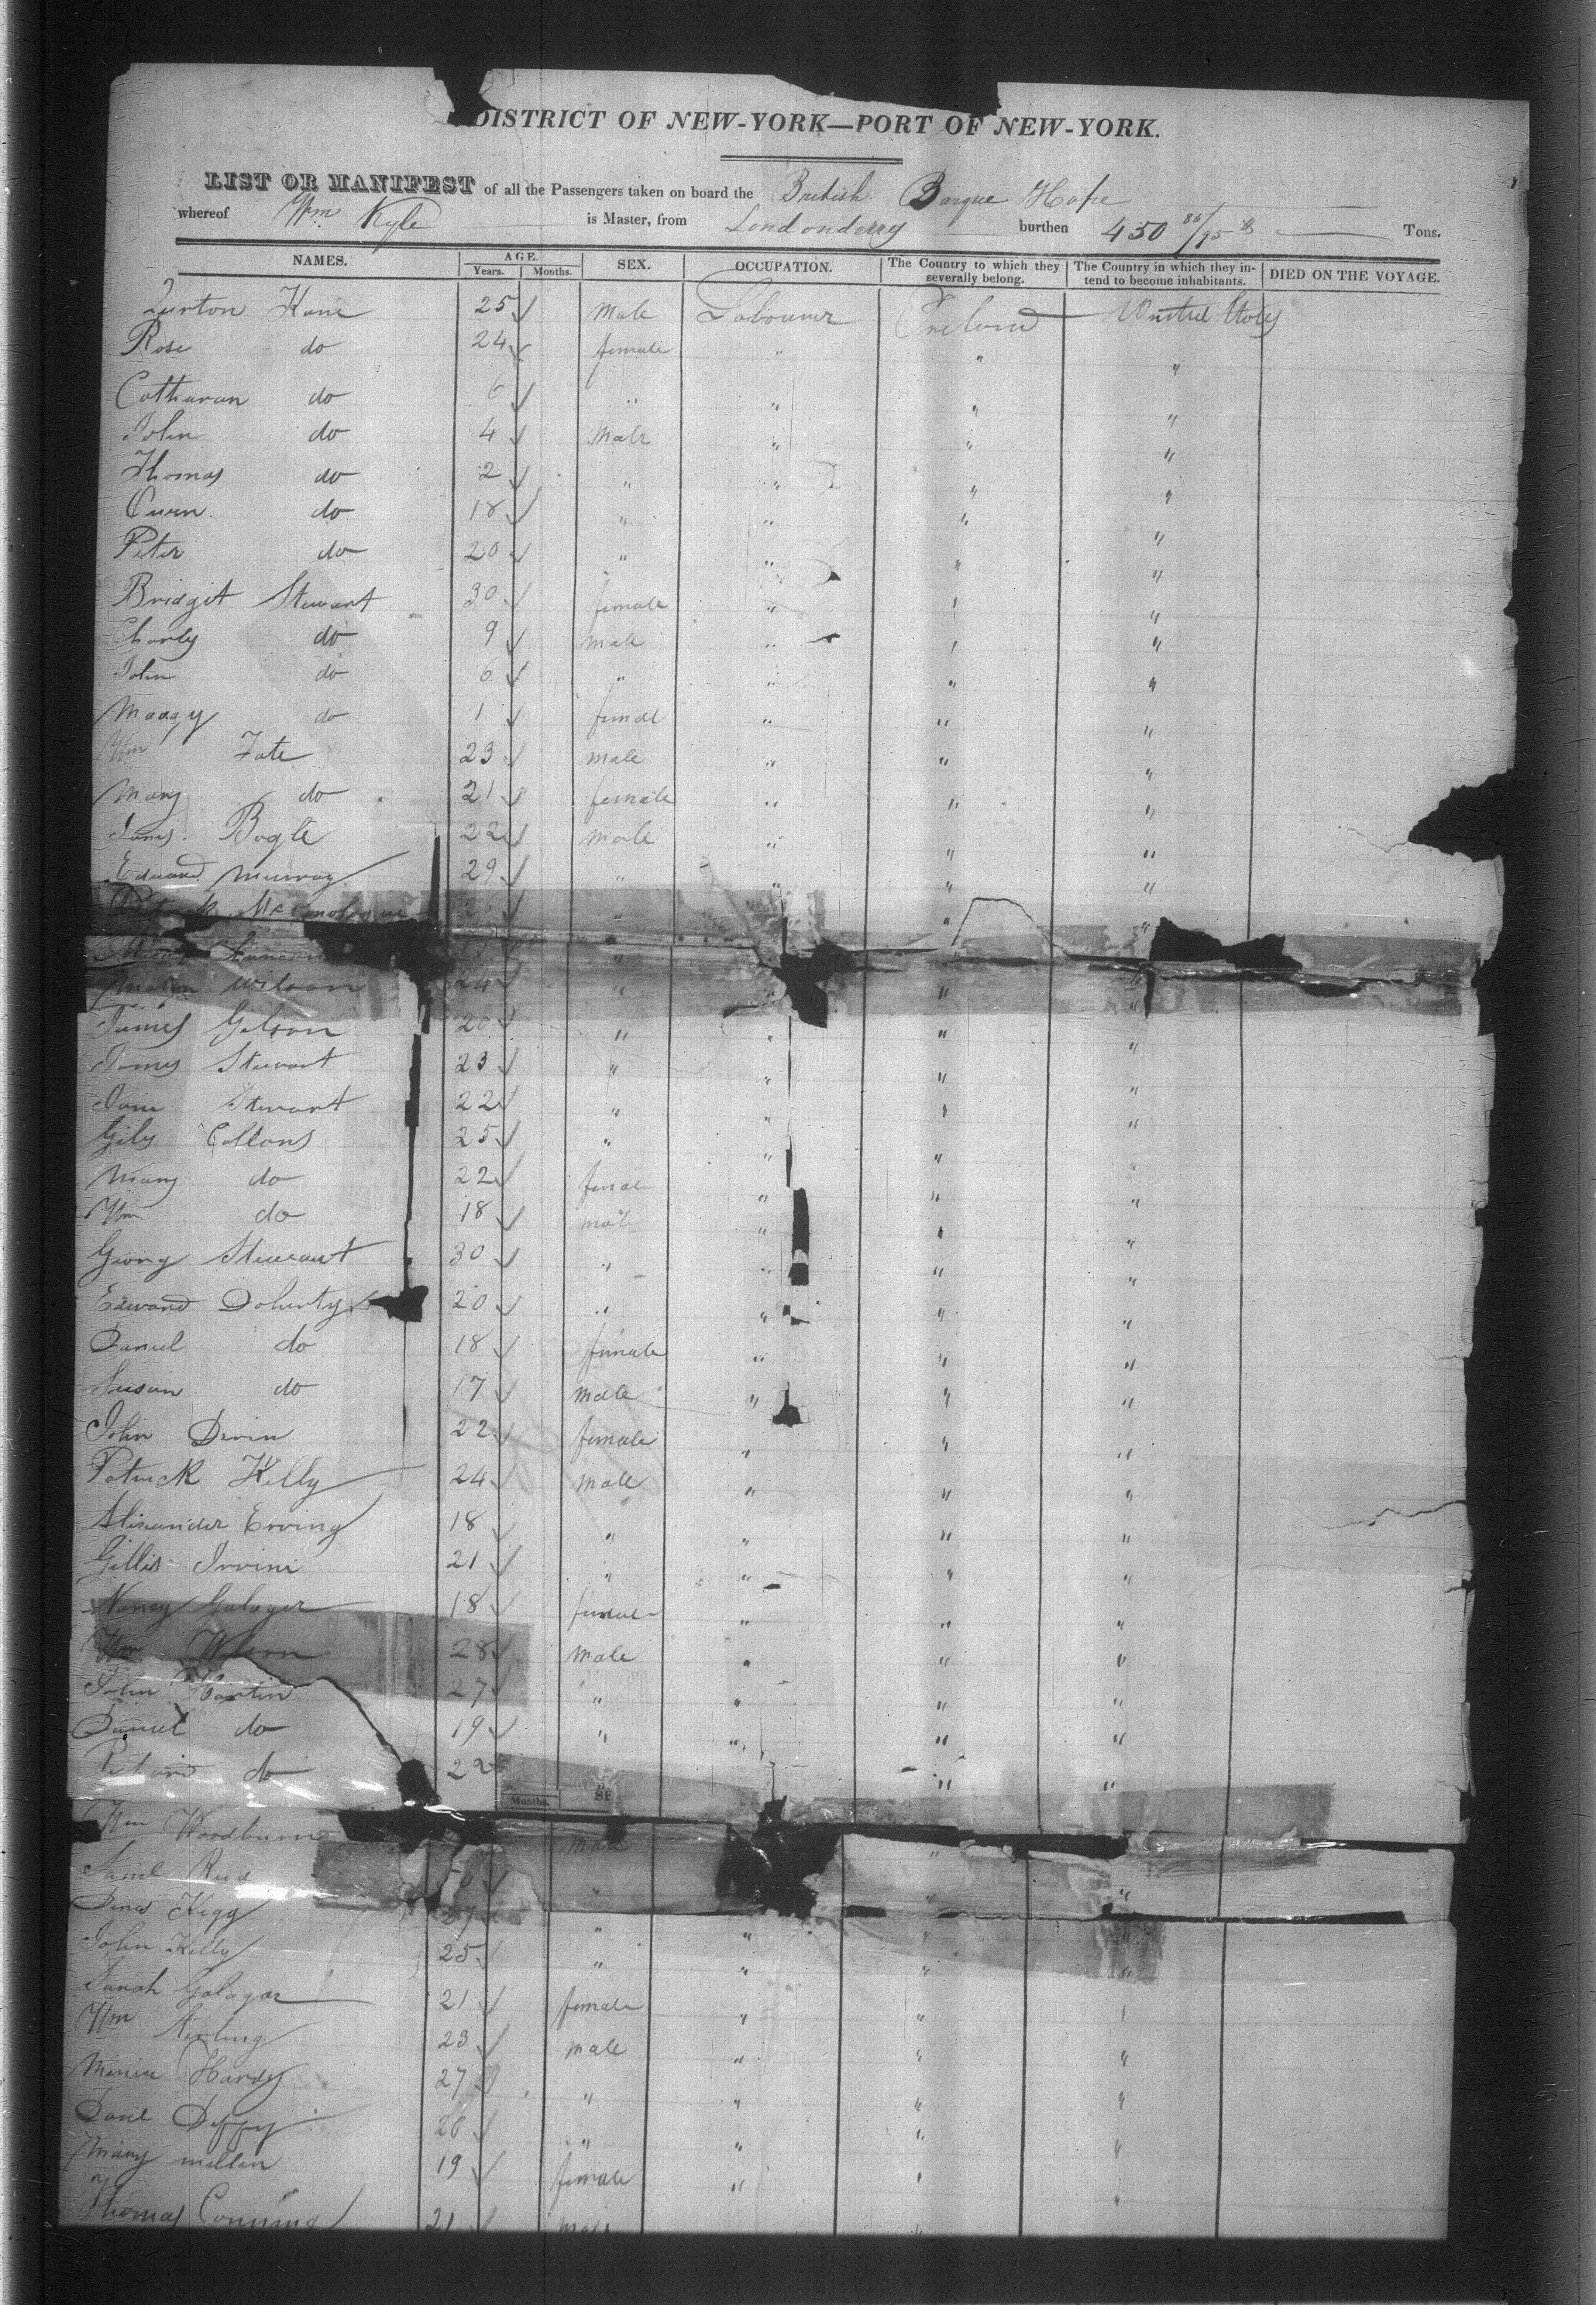 DISTRICT OF NEW-YORK—PORT OF NEW-YORK.
LIST OR MANIFEST of all the Passengers taken on board the British Barque Hope
whereof Wm. Kyle is Master, from Londonderry burthen 450 86/95ths Tons.
NAMES. AGE. Years. Months. SEX. OCCUPATION. The Country to which they severally belong. The Country in which they intend to become inhabitants. DIED ON THE VOYAGE.
Kane 25 Male Labourer Ireland United States
Rose do 24 female " " "
Catharan do 6 " " " "
John do 4 Male " " "
Thomas do 2 " " " "
Owen do 18 " " " "
Peter do 20 " " " "
Bridgit Stewart 30 female " " "
Charly do 9 male " " "
John do 6 " " " "
Maagy do 1 femal " " "
Wm Tate 23 male " " "
Mary do 21 female " " "
James Bogle 22 male " " "
Edward Murray 29 " " " "
" " "
" 
Wilson 24 " " " "
James Gibson 20 " " " "
James Stewart 23 " " " "
Stewart 22 " " " "
Gily Collons 25 " " " "
Mary do 22 female " " "
Wm do 18 male " " "
Georg Stewart 30 " " " "
Edward Doherty 20 " " " "
Daniel do 18 female " " "
Susan do 17 male " " "
John Devin 22 female " " "
Patrick Kelly 24 male " " "
Alixander Erving 18 " " " "
Gillis Irvine 21 " " " "
Nancy Galager 18 female " " "
Wm Wilson 28 male " " "
John Martin 27 " " " "
Daniel do 19 " " " "
do 22 " " "
Months. SE
Wm Woodburn "
Reid " " "
Kegg " " " "
John Kelly 25 " " " "
Sarah Galagar 21 female " " "
Wm Sterling 23 male " " "
Hardy 27 " " " "
Deffy 26 " " " "
Mary Millen 19 female " " "
Thomas 21 male "